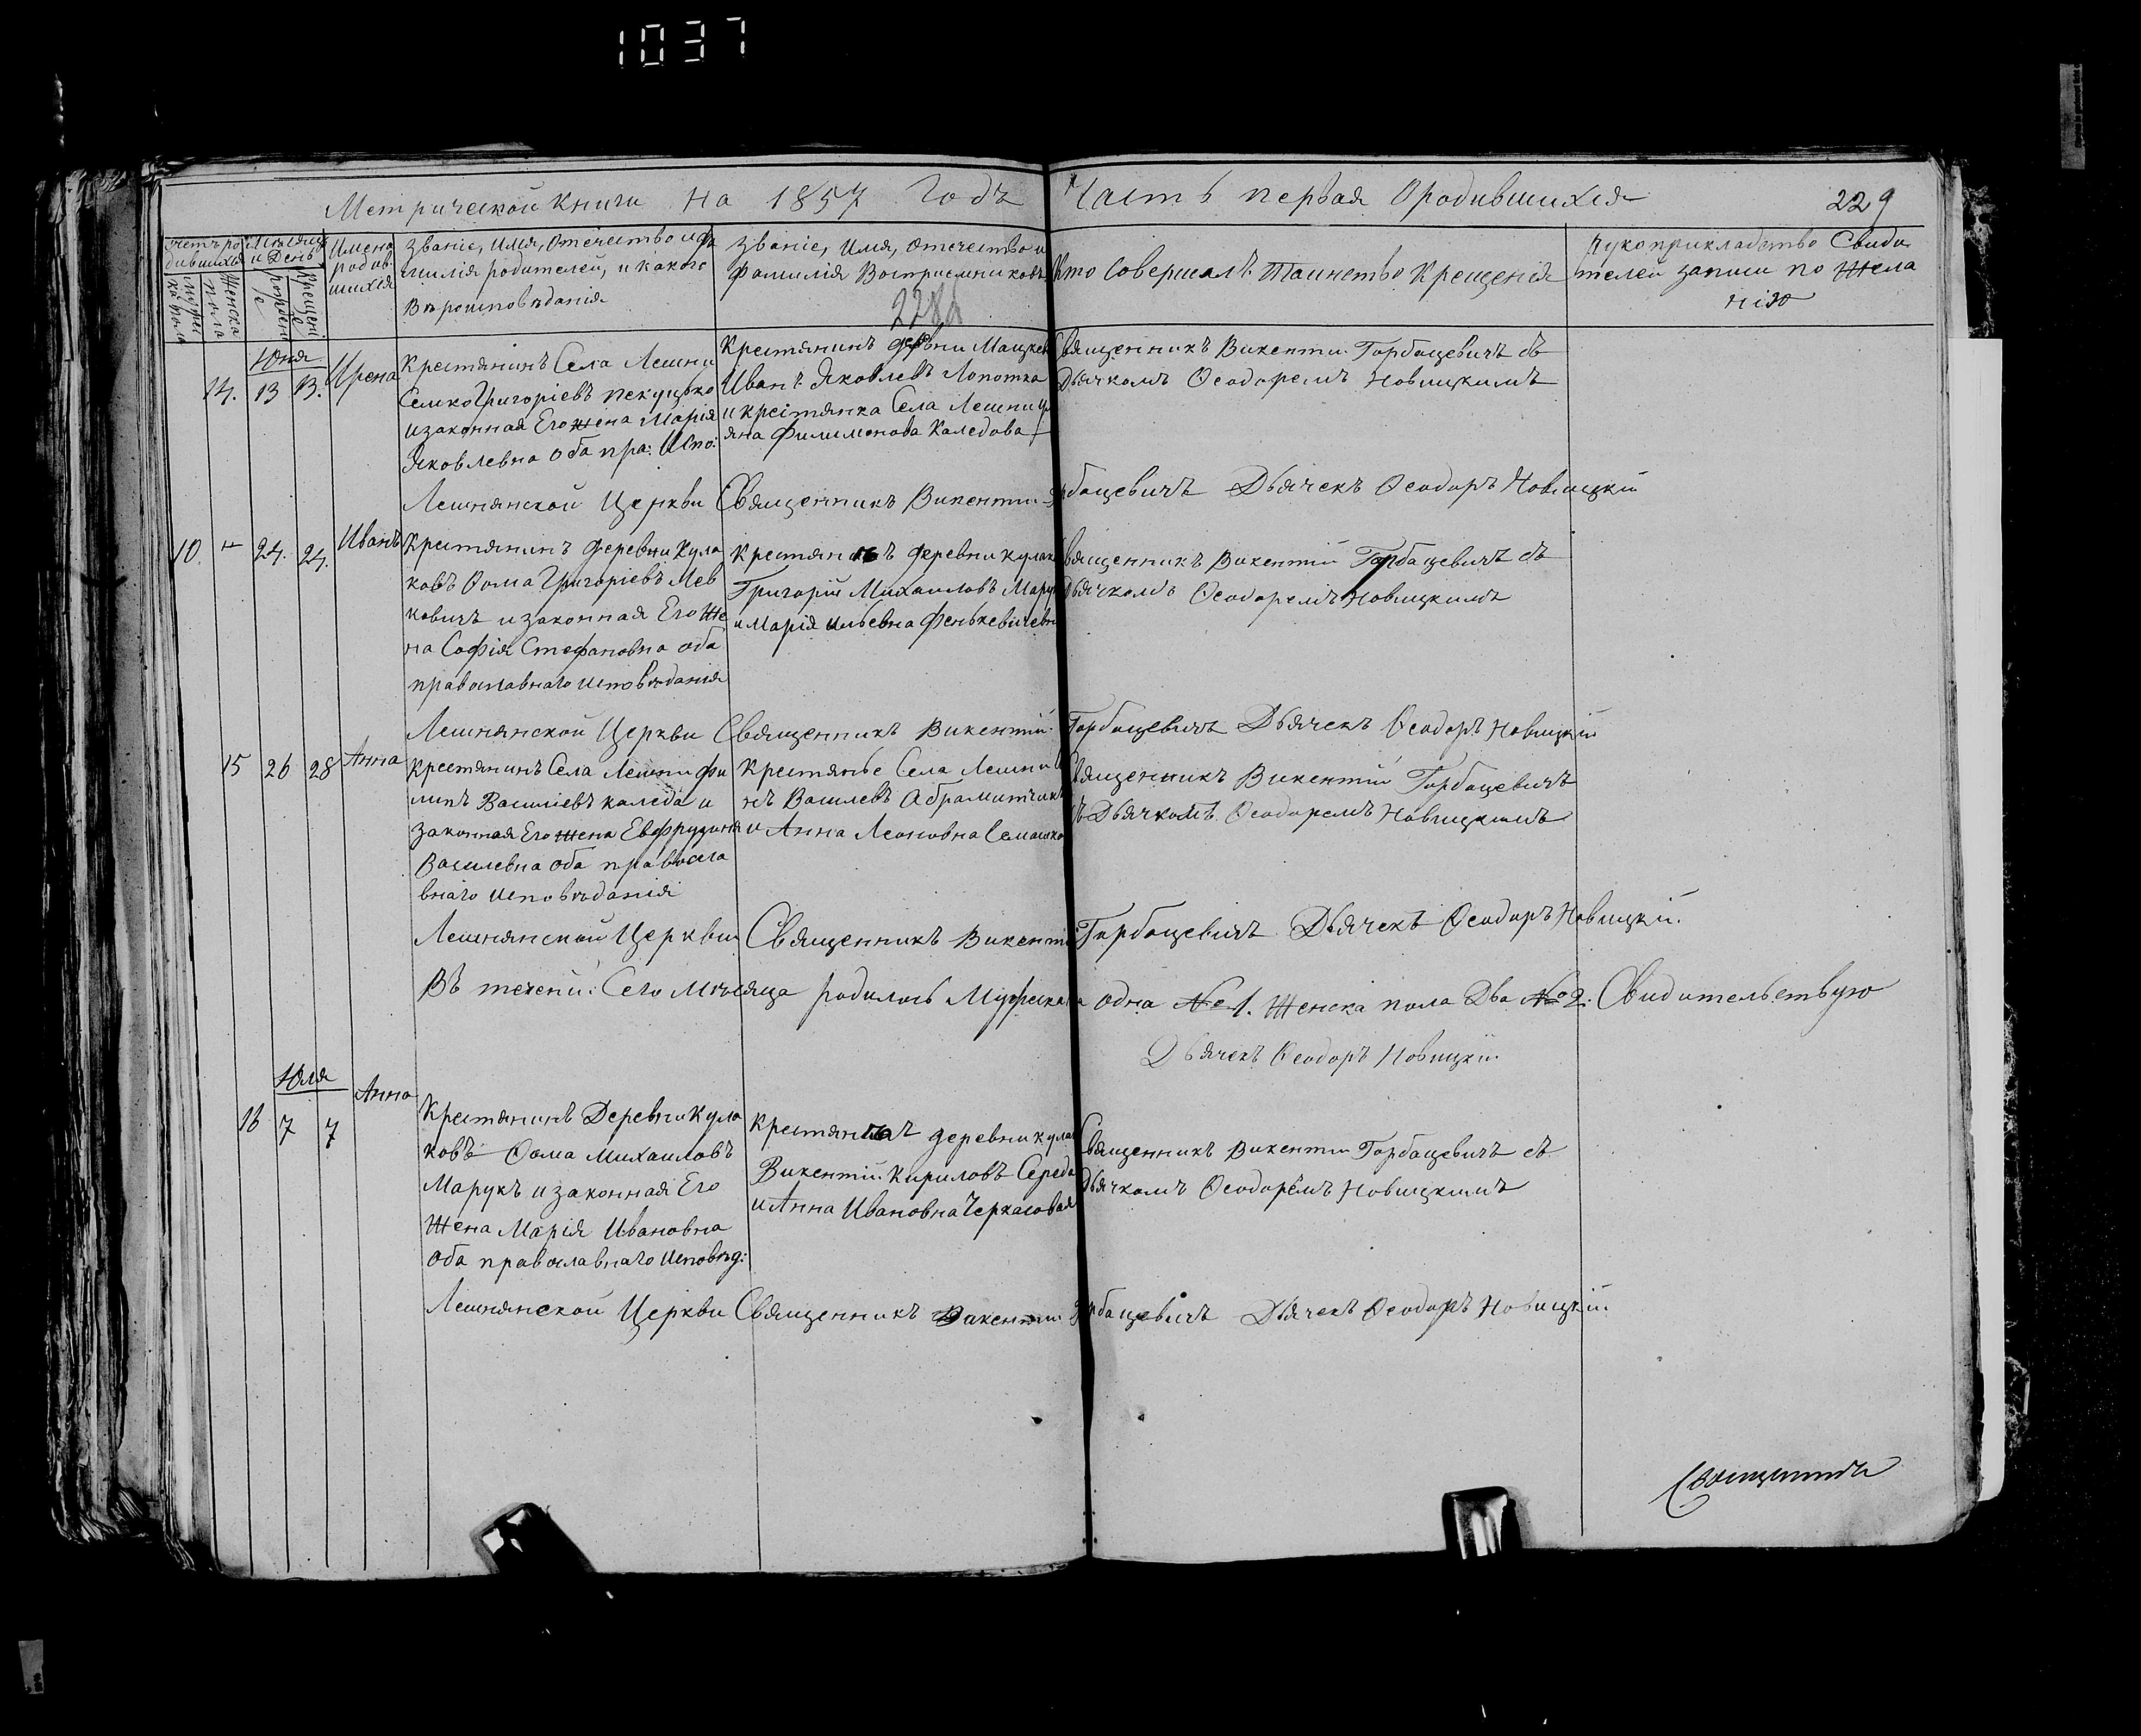 1037
Метрической Книги На 1857 Годъ Часть первая О родившихся
229
Счетъ родившихся
Мужеска пола
Женска пола
Месяцъ и День
Рождения
Крещения
Имена родившихся
Званіе, Имя, Отечество и фамилія родителей, и какого
Вѣроисповѣданія
Званіе, Имя, Отечество и
фамилія Восприемниковъ
228
Кто Совершалъ Таинство Крещенія
Рукоприкладство Свиди
телей записи по Жела
нію
Юня
14. 13 13. Ирена
Крестянинъ Села Лешни
Семко Григоріевъ
и законная Его жена Марія
Яковлевна оба пра: Испо:
Крестянинъ дерѣвни
Иванъ Яковлевъ Лопотка
и крестянка Села Лешни
Филимонова Каледова
Священникъ Викентій Горбацевичъ съ
Дьячкомъ Ѳеодоромъ Новицкимъ
Лешнянской Церкви Священникъ Викентій Горбацевичъ Дьячекъ Ѳеодоръ Новицкій
10. 24. 24. Иванъ
Крестянинъ деревни Кула
ковъ Ѳома Григоріевъ Лев
ковичъ и законная Его Же
на Софія Стефановна оба
православнаго исповѣданія
деревни кулаков
Григорій Михаиловъ Марук
и Марія Ильевна Фенькевичевна
Священникъ Викентій Горбацевичъ съ
Дьячкомъ Ѳеодоромъ Новицкимъ
Лешнянской Церкви Священникъ Викентій Горбацевичъ Дьячекъ Ѳеодоръ Новицкій
15 26 28 Анна
Крестянинъ Села Лешни Фи
липъ Василіевъ каледа и
законная Его жена Евфрузиня
Василевна оба правосла
внаго исповѣданія
Крестянье Села Лешни
Василевъ Абрамитчикъ
и Анна Леоновна Семашко
Священникъ Викентій Горбацевичъ
съ Дьячкомъ Ѳеодоромъ Новицкимъ
Лешнянской Церкви Священникъ Викентій Горбацевичъ Дьячекъ Ѳеодоръ Новицкій.
Въ течении Сего Мѣсяца родилось Мужеска одна № 1. Женска пола Два № 2. Свидительствую
Дьячекъ Ѳеодоръ Новицкій
Юля
16 7 7 Анна
Крестянинъ Деревни Кула
ковъ Ѳома Михаиловъ
Марукъ и законная Его
Жена Марія Ивановна
оба православнаго исповѣд:
деревни кулаков
Викентій Кириловъ Середа
и Анна Ивановна Черкасовая
Священникъ Викентій Горбацевичъ съ
Дьячкомъ Ѳеодоромъ Новицкимъ
Лешнянской Церкви Священникъ Викентій Горбацевичъ Дьячекъ Ѳеодоръ Новицкій.
Священникъ